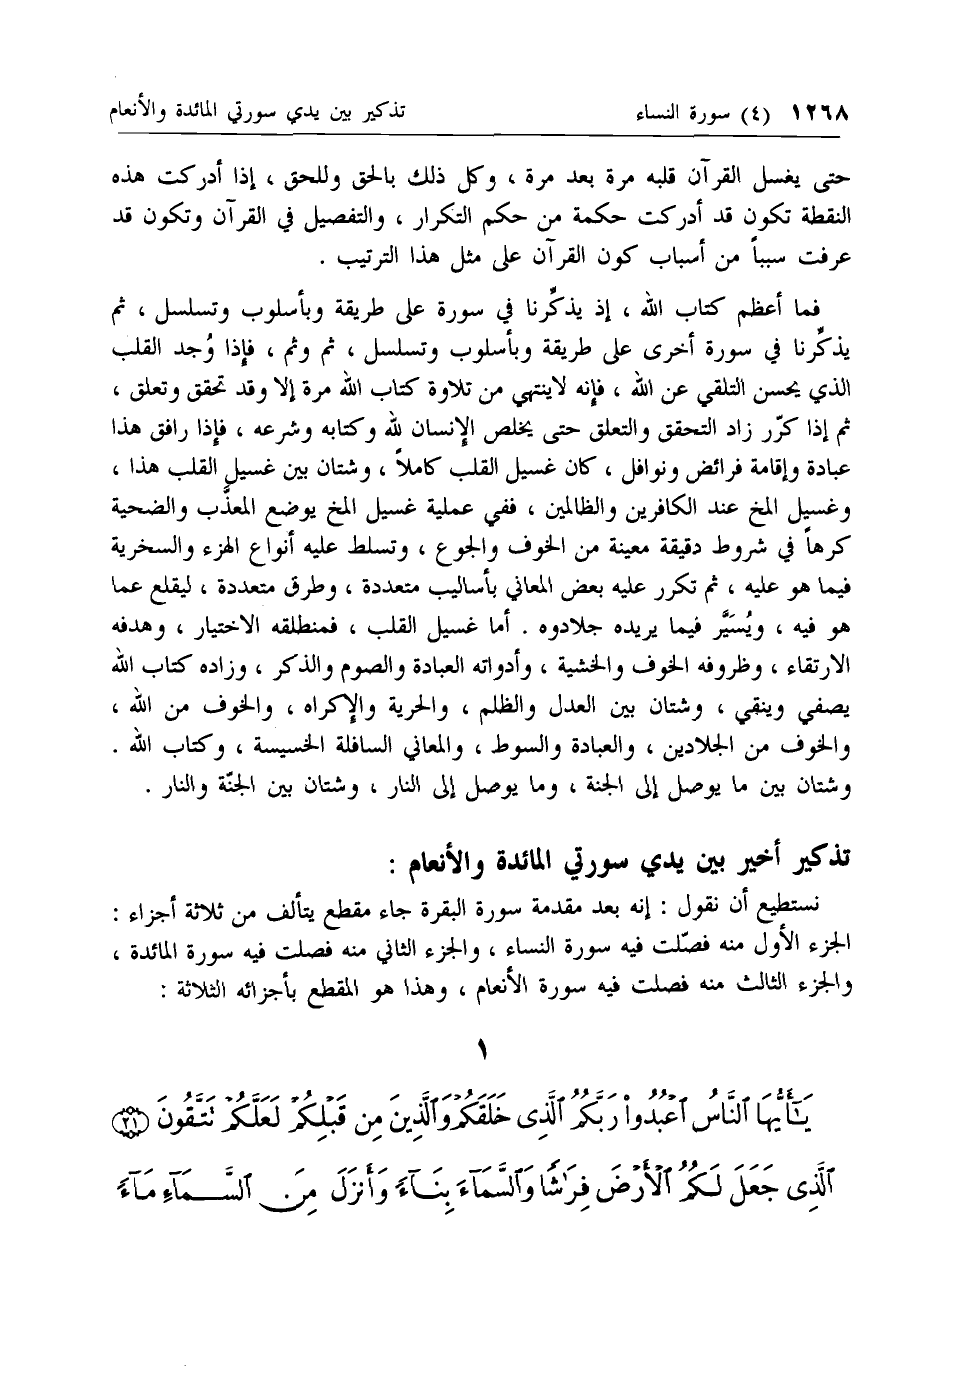 ١٢٦٨ (٤) سورة النساء تذكير بين يدي سورتي المائدة والأنعام
حتى يغسل القرآن قلبه مرة بعد مرة ، وكل ذلك بالحق وللحق ، إذا أدركت هذه
النقطة تكون قد أدركت حكمة من حكم التكرار ، والتفصيل في القرآن وتكون قد
عرفت سبباً من أسباب كون القرآن على مثل هذا الترتيب .
فما أعظم كتاب الله ، إذ يذكّرنا في سورة على طريقة وبأسلوب وتسلسل ، ثم
يذكّرنا في سورة أخرى على طريقة وبأسلوب وتسلسل ، ثم وثم ، فإذا وُجد القلب
الذي يحسن التلقي عن الله ، فإنه لاينتهي من تلاوة كتاب الله مرة إلا وقد تحقق وتعلق ،
ثم إذا كرّر زاد التحقق والتعلق حتى يخلص الإنسان لله وكتابه وشرعه ، فإذا رافق هذا
عبادة وإقامة فرائض ونوافل ، كان غسيل القلب كاملاً ، وشتان بين غسيل القلب هذا ،
وغسيل المخ عند الكافرين والظالمين ، ففي عملية غسيل المخ يوضع المعذَّب والضحية
كرهاً في شروط دقيقة معينة من الخوف والجوع ، وتسلط عليه أنواع الهزء والسخرية
فيما هو عليه ، ثم تكرر عليه بعض المعاني بأساليب متعددة ، وطرق متعددة ، ليقلع عما
هو فيه ، ويُسَيَّر فيما يريده جلادوه . أما غسيل القلب ، فمنطلقه الاختيار ، وهدفه
الارتقاء ، وظروفه الخوف والخشية ، وأدواته العبادة والصوم والذكر ، وزاده كتاب الله
يصفي وينقي ، وشتان بين العدل والظلم ، والحرية والإكراه ، والخوف من الله ،
والخوف من الجلادين ، والعبادة والسوط ، والمعاني السافلة الخسيسة ، وكتاب الله .
وشتان بين ما يوصل إلى الجنة ، وما يوصل إلى النار ، وشتان بين الجنّة والنار .
تذكير أخير بين يدي سورتي المائدة والأنعام :
نستطيع أن نقول : إنه بعد مقدمة سورة البقرة جاء مقطع يتألف من ثلاثة أجزاء :
الجزء الأول منه فصّلت فيه سورة النساء ، والجزء الثاني منه فصلت فيه سورة المائدة ،
والجزء الثالث منه فصلت فيه سورة الأنعام ، وهذا هو المقطع بأجزائه الثلاثة :
١
يَـٰٓأَيُّهَا ٱلنَّاسُ ٱعْبُدُوا۟ رَبَّكُمُ ٱلَّذِى خَلَقَكُمْ وَٱلَّذِينَ مِن قَبْلِكُمْ لَعَلَّكُمْ تَتَّقُونَ ٢١
ٱلَّذِى جَعَلَ لَكُمُ ٱلْأَرْضَ فِرَٰشًا وَٱلسَّمَآءَ بِنَآءً وَأَنزَلَ مِنَ ٱلسَّمَآءِ مَآءً